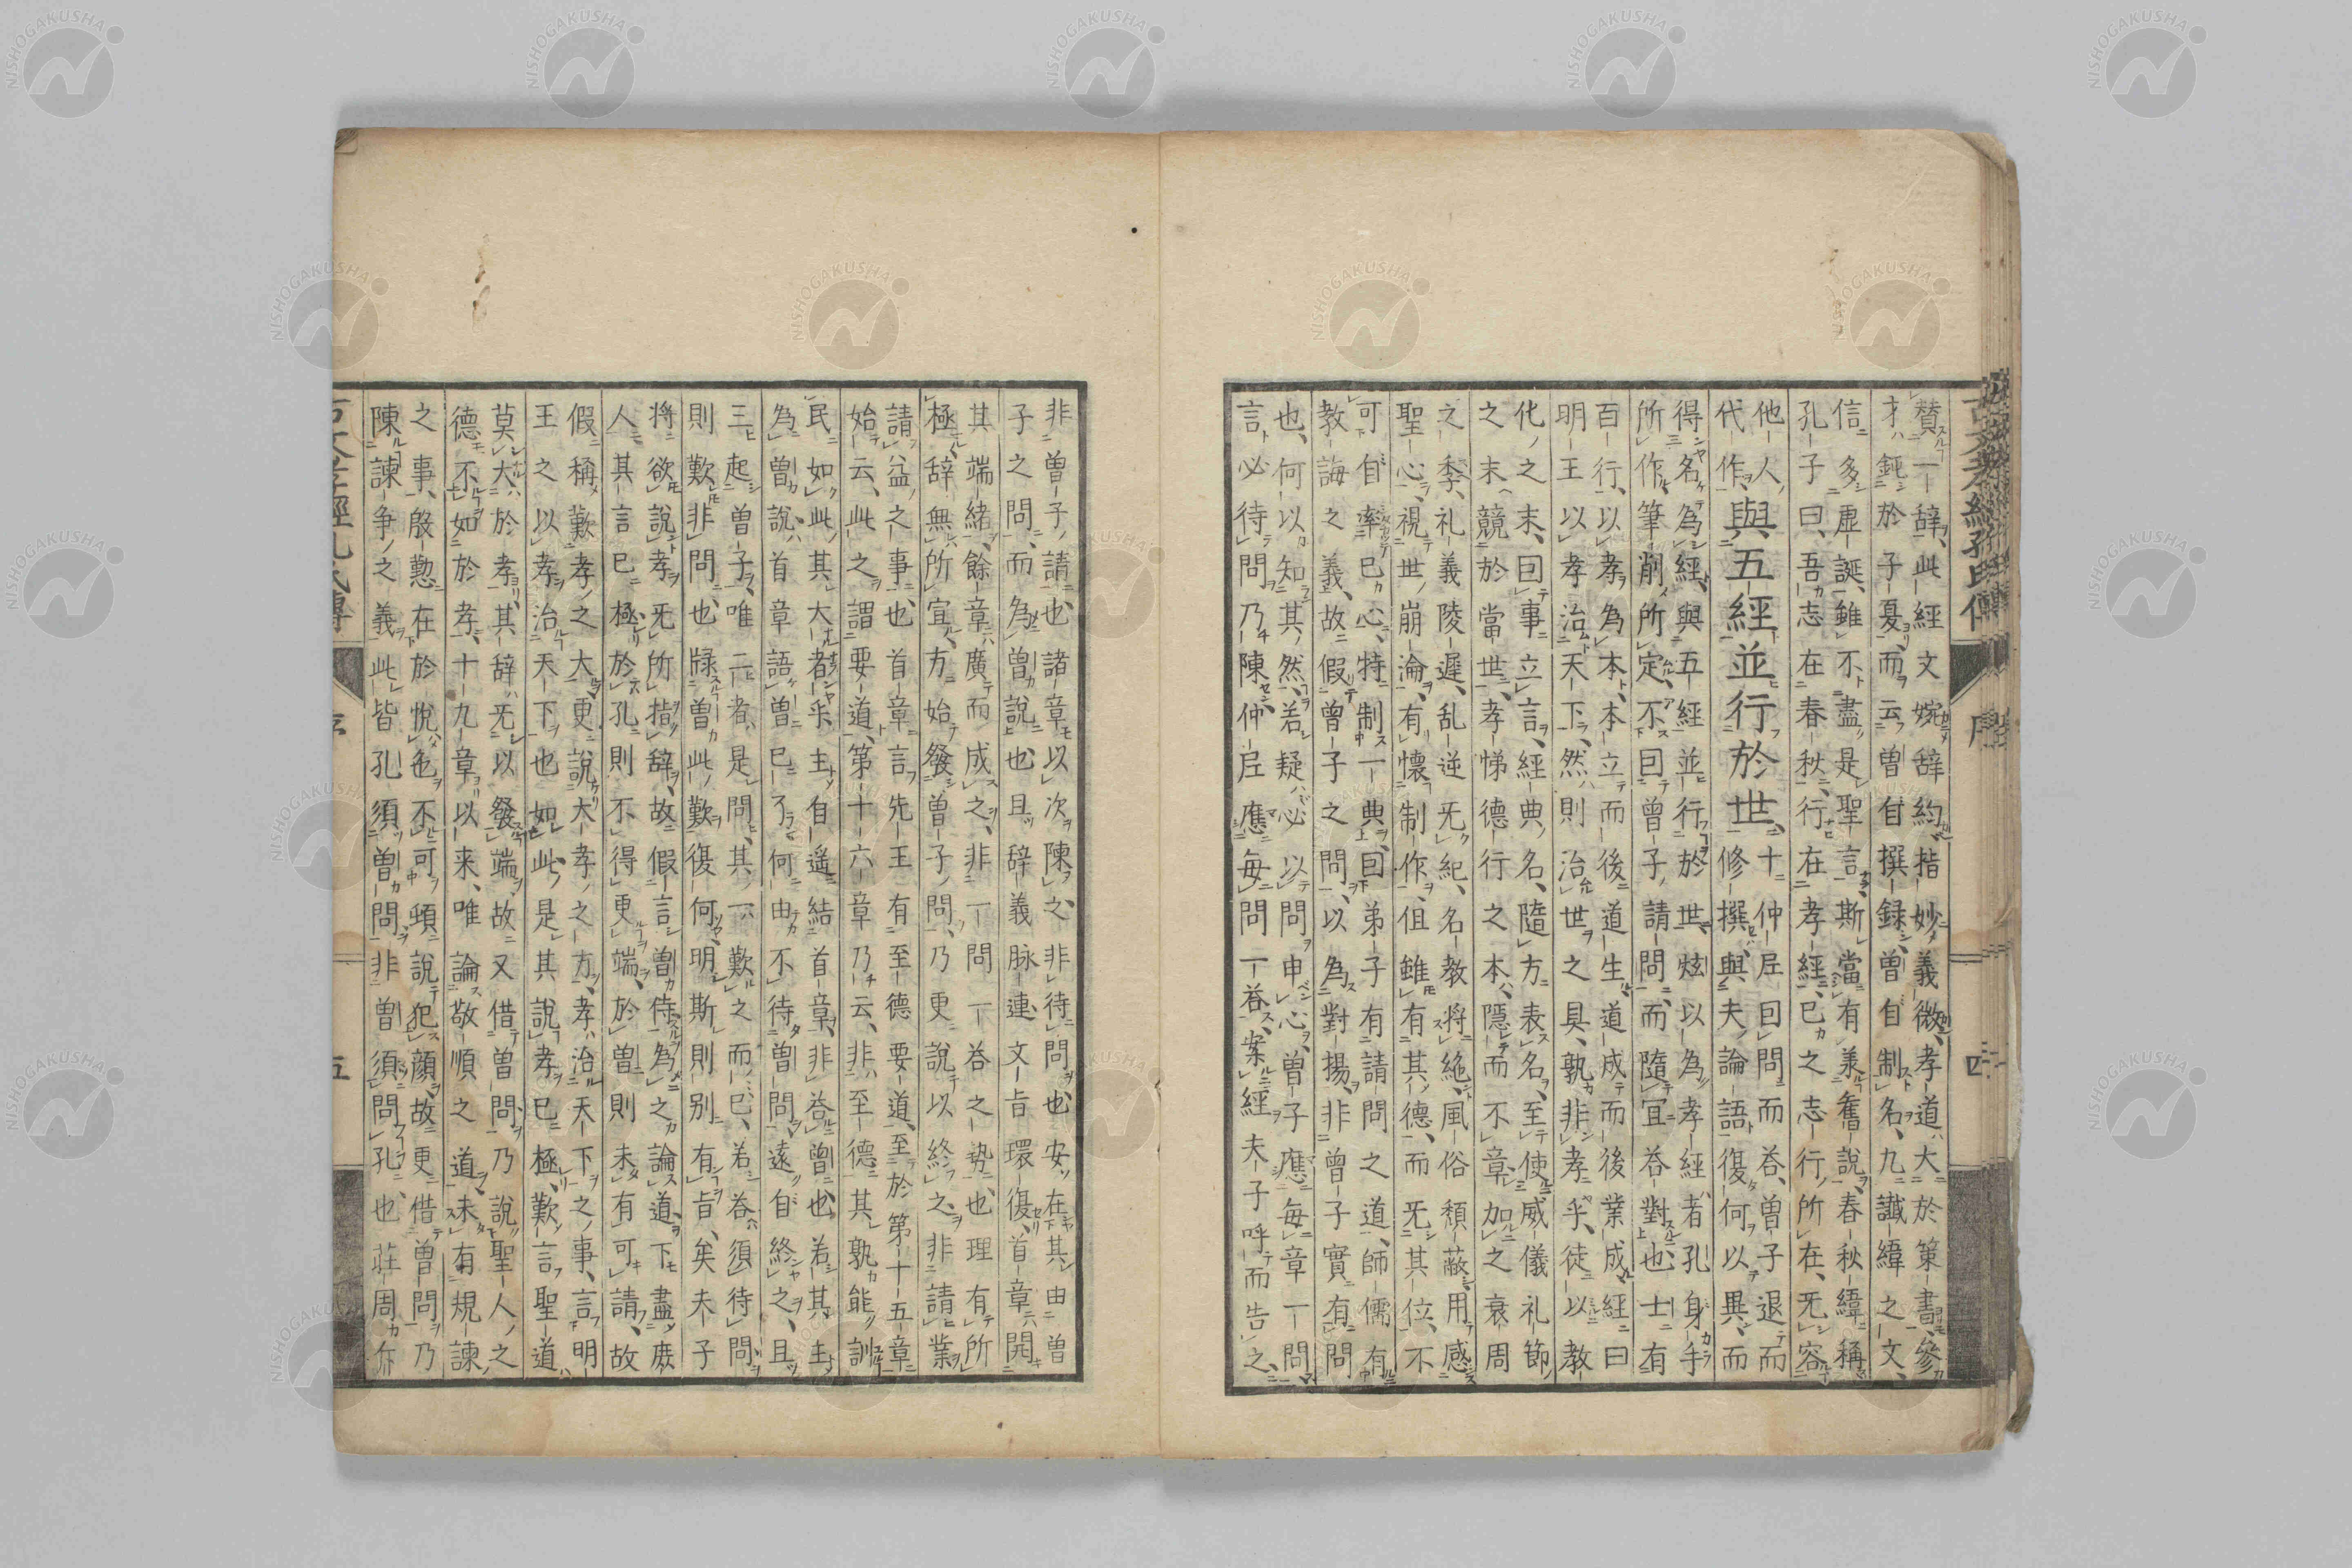 賛一辞此経文婉辞約指妙義微孝道大於策書參
才鈍於子夏而云曽自撰録曽自制名九讖緯之文
信多虛誕雖不盡是聖言斯當有兼舊說春秋緯稱
孔子曰吾志在春秋行在孝經已之志行所在无容
他人與五經並行於世十仲尼曰問而荅曽子退而
代作與五經並行於世修撰與夫論語復何以異而
得名為經與五經並行於世炫以為孝經者孔身手
所作筆削所定不曰曽子請問而隨宜荅對也士有
百行以孝為本本立而後道生道成而後業成経曰
明王以孝治天下然則治世之具孰非孝乎徒以教
化之末回事立言經典名隨方表名至使威儀礼節
之末競於當世孝悌德行之本隱而不章加之衰周
之季礼義陵遅乱逆无紀名教將絶風俗頽蔽用感
聖心視世崩淪有懐制作但雖有其德而无其位不
可自率已心特制一典曰弟子有請問之道師儒有
教誨之義故假曽子之問以為對揚非曽子實有問
也何以知其然若疑必以問申心曽子應毎章一問
言必待問乃陳仲尼應毎問一荅案經夫子呼而告之
非曽子請也諸章以次陳之非待問也安在其由曽
子之問而為曽說也且辞義脉連文旨環復首章開
其端緒餘章廣而成之非一問一荅之勢也理有所
極辞無所宜方始發曽子問乃更說以終之非請業
請益之事也首章言先王有至德要道至於第十五章
始云此之謂要道第十六章乃云非至德其孰能訓
民如此其大者乎主自遥結首章非荅曽也若其主
為曽說首章語曽已了何由不待曽問遠自終之且
三起曽子唯二者是問其一歎之而已若荅須待問
則歎非問也牒曽此歎復何明斯則別有旨矣夫子
將欲說孝无所措辞故假言曽侍為之論道下盡庶
人其言已極於孔則不得更端於曽則未有可請故
假稱歎孝之大更說大孝之方孝治天下之事言明
王之以孝治天下也如此是其說孝已極歎言聖道
莫大於孝其辞无以發端故又借曽問乃說聖人之
德不如於孝十九章以来唯論敬順之道未有規諫
之事殷懃在於悅色不可頓說犯顔故更借曽問乃
陳諫争之義此皆孔須曽問非曽須問孔也莊周
序
四
序
五